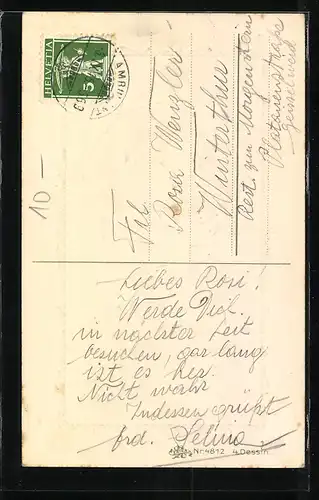 HELVETIA
5
10 —
Frl.
Rosa Wenzler
Winterthur
Rest. zum Morgenstern
Platanenstrasse
Liebes Rosi!
Werde Dich
in nächster Zeit
besuchen, gar lang
ist es her.
Nicht wahr
Indessen grüßt
frd. Selina.
Nr. 4812 4 Dessin